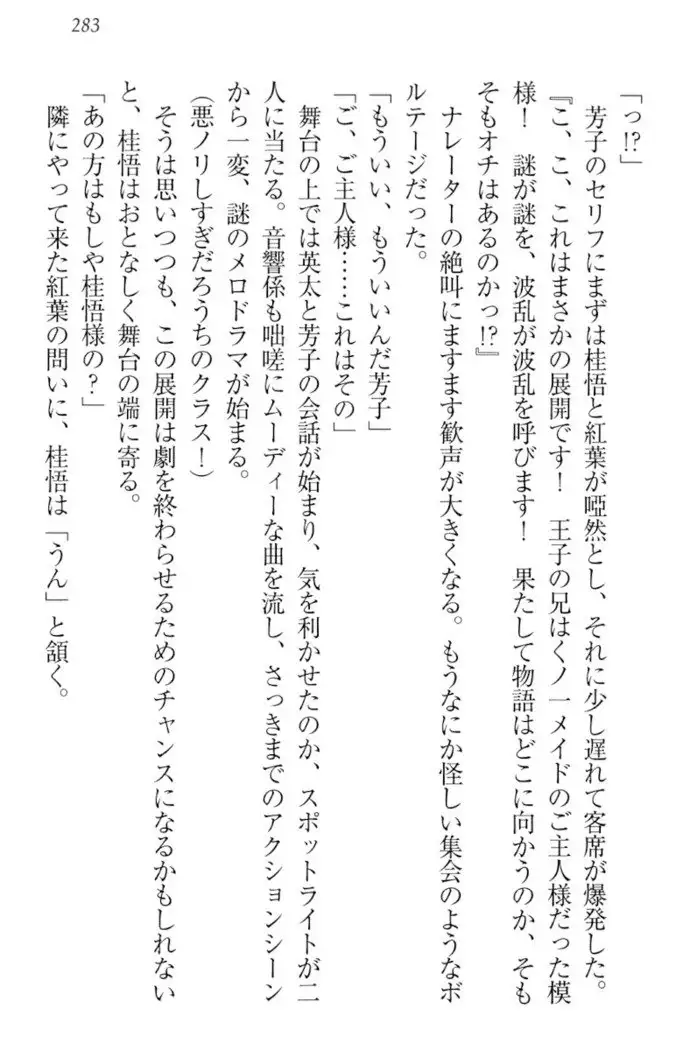 283
「っ!?」
芳子のセリフにまずは桂悟と紅葉が啞然とし、それに少し遅れて客席が爆発した。
『こ、こ、これはまさかの展開です！　王子の兄はくノ一メイドのご主人様だった模
様！　謎が謎を、波乱が波乱を呼びます！　果たして物語はどこに向かうのか、そも
そもオチはあるのかっ!?』
ナレーターの絶叫にますます歓声が大きくなる。もうなにか怪しい集会のようなボ
ルテージだった。
「もういい、もういいんだ芳子」
「ご、ご主人様……これはその」
舞台の上では英太と芳子の会話が始まり、気を利かせたのか、スポットライトが二
人に当たる。音響係も咄嗟にムーディーな曲を流し、さっきまでのアクションシーン
から一変、謎のメロドラマが始まる。
（悪ノリしすぎだろうちのクラス！）
そうは思いつつも、この展開は劇を終わらせるためのチャンスになるかもしれない
と、桂悟はおとなしく舞台の端に寄る。
「あの方はもしや桂悟様の？」
隣にやって来た紅葉の問いに、桂悟は「うん」と頷く。